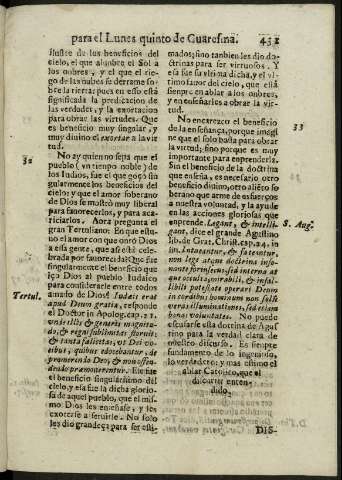 para el Lunes quinto de Cuaresma. 431
lustre de los beneficios del
cielo, el que alumbre el Sol a
los onbres, y el que el rie-
go de las nubes se derrame so-
bre la tierra: pues en esso està
significada la predicacion de
las verdades, y la exortacion
para obrar las virtudes. Que
es beneficio muy singular, y
muy divino el exortar a la vir-
tud.
32
No ay quien no siga que el
pueblo (un tienpo noble) de
los Indios, fue el que gozò sin
gularmente los beneficios del
cielo; y que el amor soberano
de Dios se mostrò muy liberal
para favorecerlos, y para aca-
riciarlos. Aora pregunta el
gran Tertuliano: En que estu-
vo el amor con que onrò Dios
a essa gente, que assi està cele-
brada por favorecida? Que fue
singularmente el beneficio que
izo Dios al pueblo Iudaico
para considerarle entre todos
amado de Dios?
Tertul.
Iudæis erat
apud Deum gratia, responde
el Doctor in Apolog. cap. 21.
unde illis & generis magnitu-
do, & regni sublimitas floruit;
& tanta fælicitas, ut Dei vo-
cibus, quibus edocebantur, de
promerendo Deo, & non offen-
dendo præmonerentur. Esse fue
el beneficio singularissimo del
cielo, y essa fue la dicha glorio-
sa de aquel pueblo, que el mis-
mo Dios les enseñase, y les
exortase a servirle. No solo
les dio grandeça para ser esti-
mados; sino tanbien les dio do-
ctrinas para ser virtuosos. Y
essa fue su ultima dicha, y el ul-
timo favor del cielo, que està
sienpre en ablar a los onbres,
y en enseñarles a obrar la vir-
tud.
33
No encarezco el beneficio
de la enseñança, porque imagi
ne que el solo basta para obrar
la virtud; sino porque es muy
importante para enprenderla.
Sin el beneficio de la doctrina
que enseña, es necesario otro
beneficio divino, otro aliento so
berano que arme de esfuerços
a nuestra voluntad, y la ayude
en las acciones gloriosas que
enprende.
S. Aug.
Legant, & intelli-
gant, dice el grande Agustino
lib. de Grat. Christ. cap. 24. in
fin. Intueantur, & fateantur,
non lege atque doctrina inso-
nante forinsecus, sed interna at
que occulta, mirabili, & inefa-
bili potestate operari Deum
in cordibus hominum non solùm
veras illuminationes, sed etiam
bonas voluntates. No puedo
escusarse esta dotrina de Agus
tino para la verdad clara de
nuestro discurso. Es sienpre
fundamento de lo ingenioso,
lo verdadero; y mas estimo el
ablar Catolico, que el
discurrir enten-
dido.
DIS-